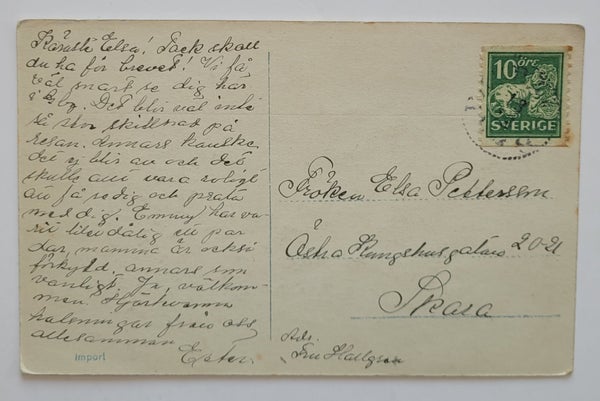 Käraste Elsa! Tack skall
du ha för brevet! Vi få
väl snart se dig här
Det blir väl inte
så stor skillnad på
resan. Annars kanske
det ej blir av och det
skulle annars vara roligt
att få se dig och prata
med dig. Emmy har va-
rit litet dålig ett par
dar, mamma är också
förkyld, annars som
vanligt. Ja, välkom-
men. Hjärtevarma
hälsningar från oss
allesamman
Ester.
10 ÖRE
SVERIGE
Fröken Elsa Pettersson
Östra Kungshusgatan 20-21
Skara
Adr.
Fru Hallgren
Import